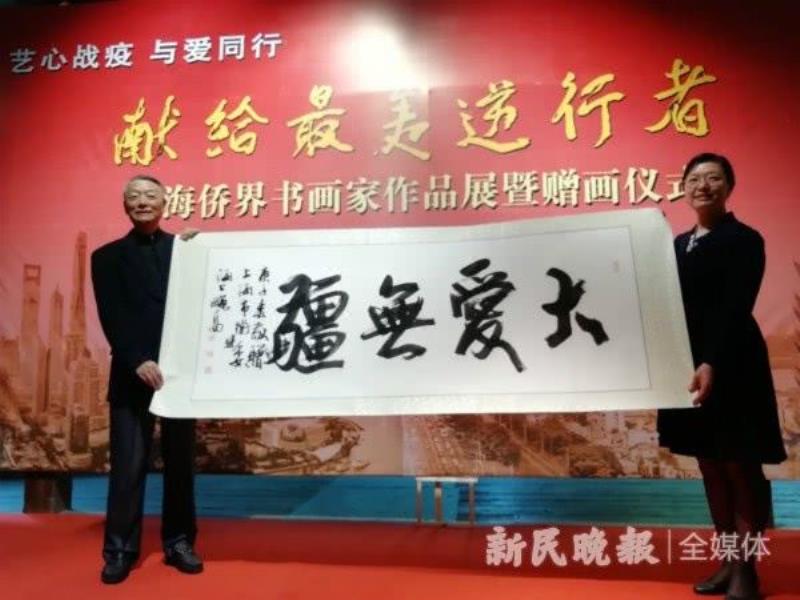 艺心战疫 与爱同行
献给最美逆行者
海侨界书画家作品展暨赠画仪式
大爱無疆
庚子春敬赠
上海市
新民晚报|全媒体